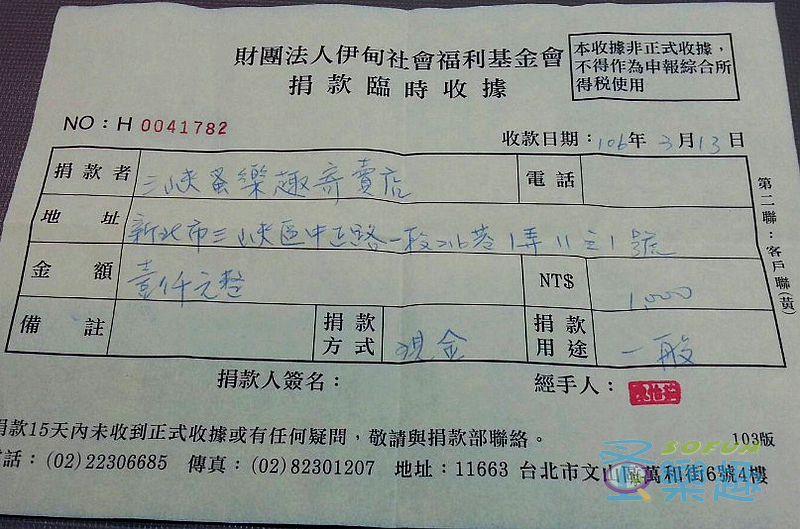 財團法人伊甸社會福利基金會
捐款臨時收據
本收據非正式收據，
不得作為申報綜合所
得稅使用
NO：H 0041782
收款日期：106年 3月13日
捐款者 三峽蚤樂趣寄賣店 電話
地址 新北市三峽區中正路一段216巷1弄11之1號
金額 壹仟元整 NT$ 1,000
備註 捐款方式 現金 捐款用途 一般
第二聯：客戶聯(黃)
捐款人簽名： 經手人：
捐款15天內未收到正式收據或有任何疑問，敬請與捐款部聯絡。 103版
電話：(02)22306685 傳真：(02)82301207 地址：11663 台北市文山區萬和街6號4樓
SOFUN
蚤樂趣